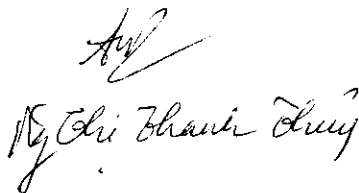 Ng Thị Thanh Thủy